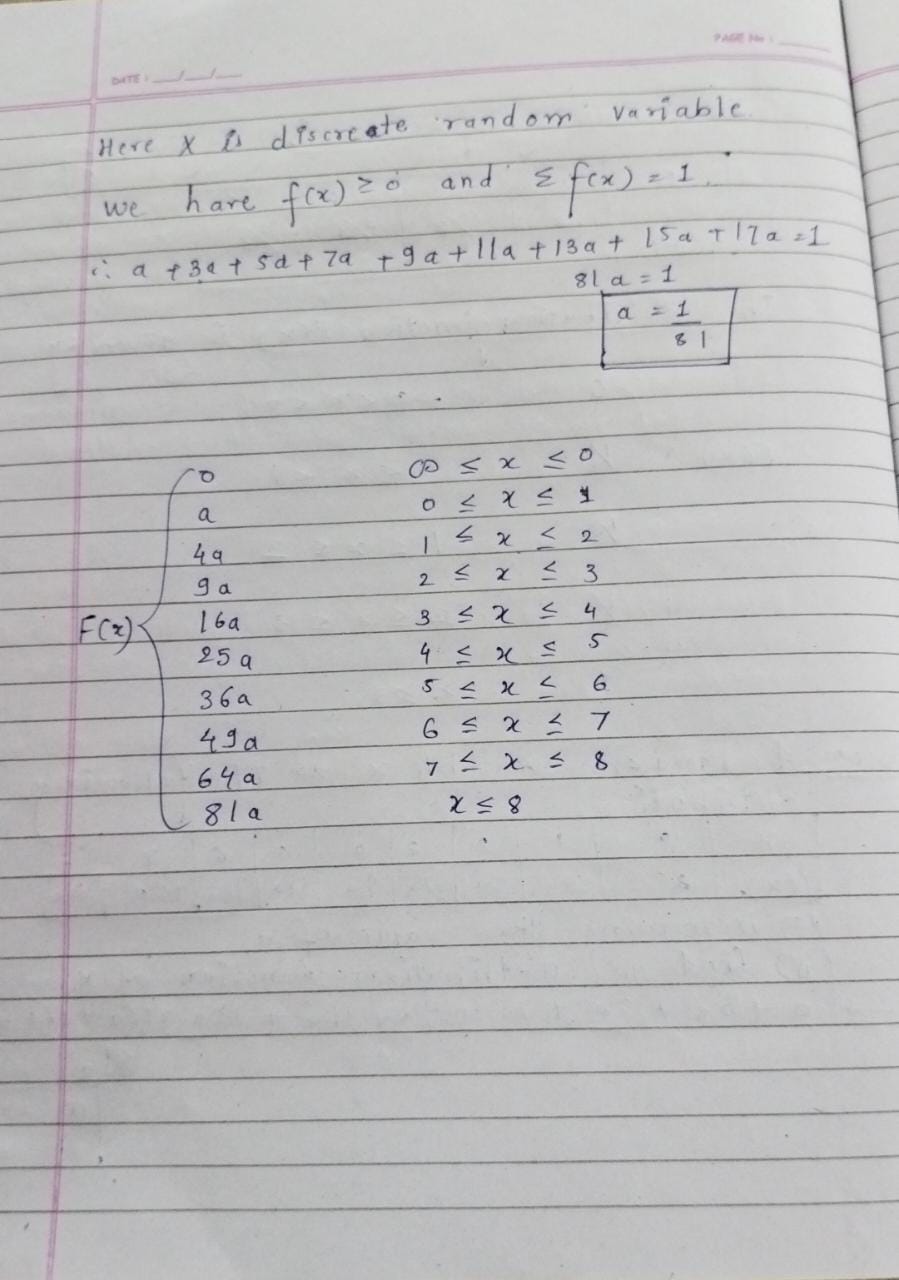 PAGE No :
DATE : __/__/__
Here x is discreate random variable.
we have f(x) ≥ 0 and Σ f(x) = 1.
∴ a + 3a + 5a + 7a + 9a + 11a + 13a + 15a + 17a = 1
81 a = 1
a = 1/81
F(x) { 0 ∞ ≤ x ≤ 0
a 0 ≤ x ≤ 1
4a 1 ≤ x ≤ 2
9a 2 ≤ x ≤ 3
16a 3 ≤ x ≤ 4
25a 4 ≤ x ≤ 5
36a 5 ≤ x ≤ 6
49a 6 ≤ x ≤ 7
64a 7 ≤ x ≤ 8
81a x ≤ 8